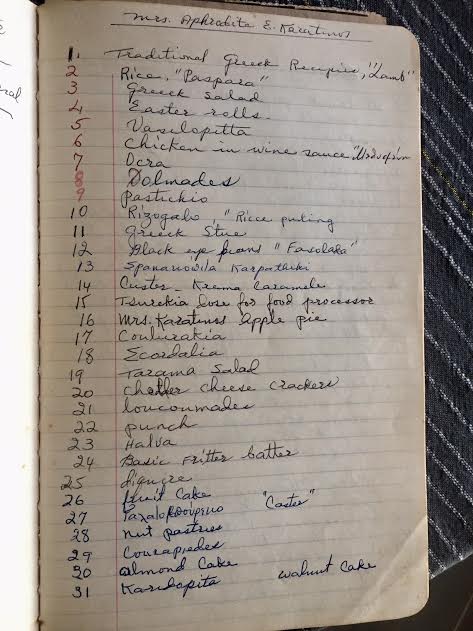 Mrs. Aphrodite E. Karatinos
1. Traditional Greek Recipies, "Lamb"
2 Rice, "Paspara"
3 Greek Salad
4 Easter rolls
5 Vasilopitta
6 Chicken in wine sauce
7 Ocra
8 Dolmades
9 Pastichio
10 Rizogalo, "Rice puding
11 Greek Stue
12 Black eye beans "Fasolada"
13 Karpathiki
14 Custer - Krema Caramele
15 Tsurekia dose for food processor
16 Mrs. Karatinos Apple pie
17 Coulurakia
18 Scordalia
19 Tarama Salad
20 chedher cheese crackers
21 loucoumades
22 punch
23 Halva
24 Basic Fritter batter
25
26 fruit Cake
27 "Caster"
28 nut pastries
29 Courapiedes
30 almond Cake
31 Karidopita walnut Cake